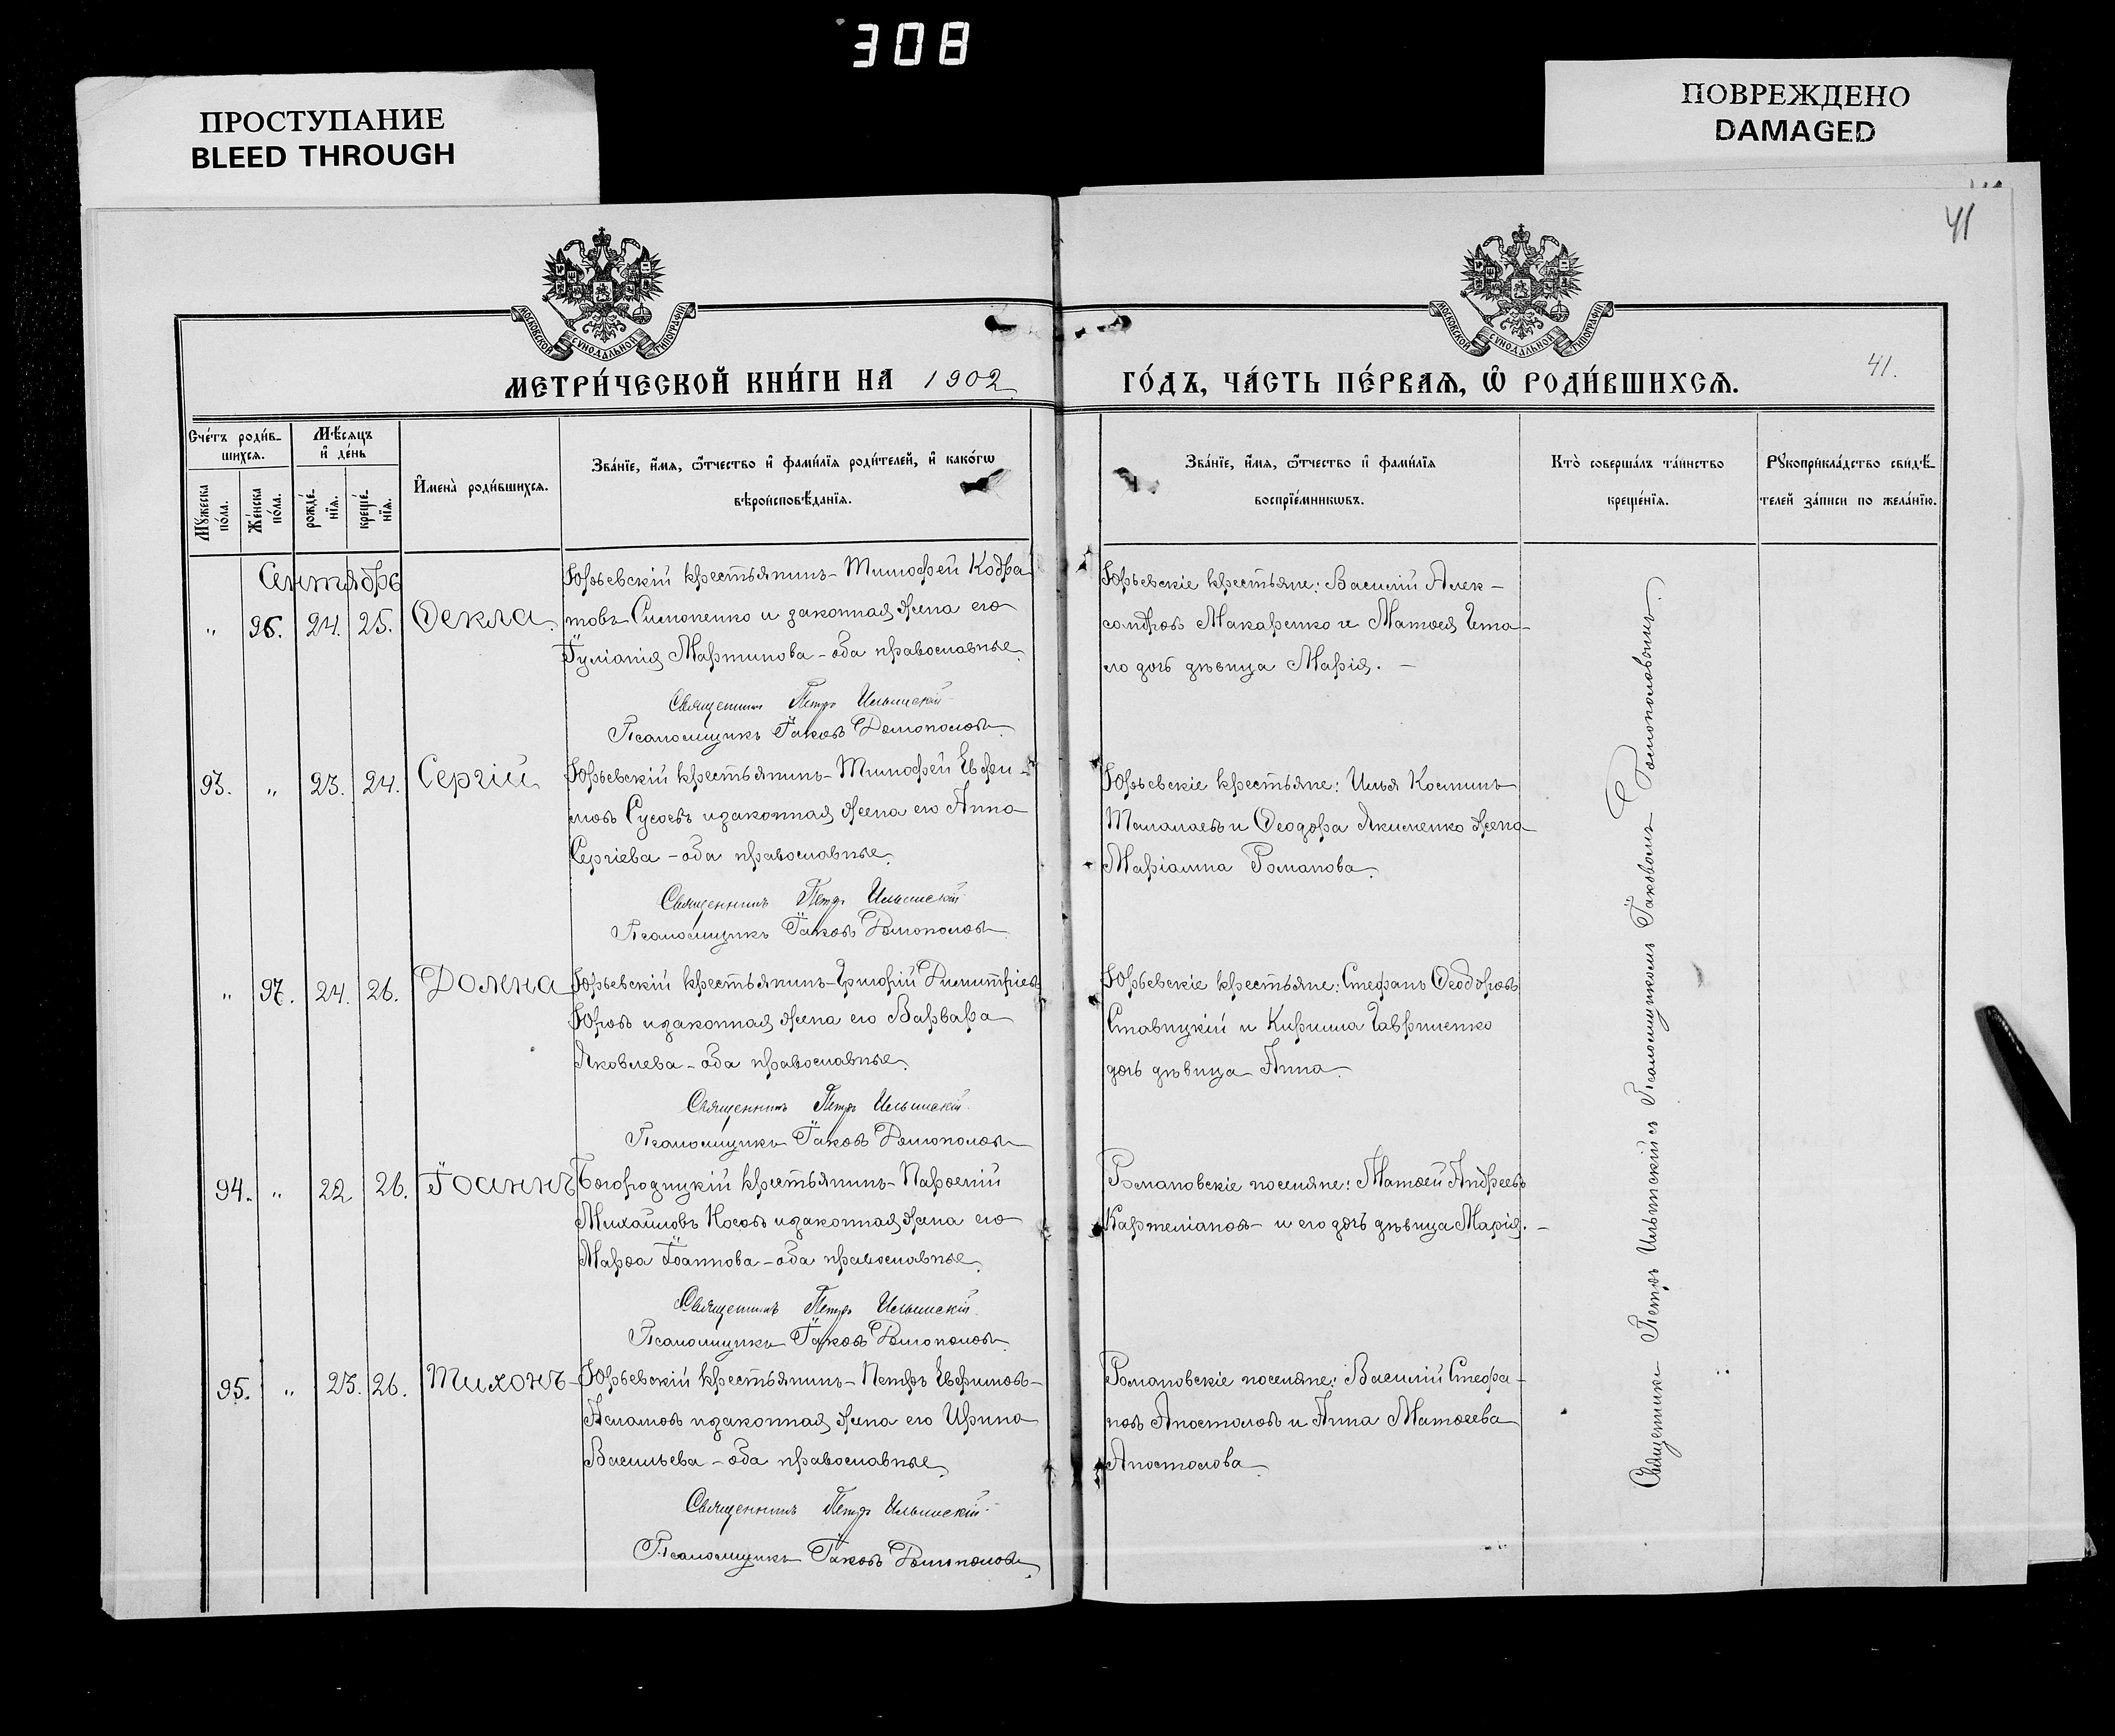 308
ПРОСТУПАНИЕ
BLEED THROUGH
ПОВРЕЖДЕНО
DAMAGED
41
МОСКОВСКОЙ СУНОДАЛЬНОЙ ТИПОГРАФІИ
МОСКОВСКОЙ СУНОДАЛЬНОЙ ТИПОГРАФІИ
МЕТРИ́ЧЕСКОЙ КНИ́ГИ НА 1902
ГО́ДЪ, ЧА́СТЬ ПЕ́РВАѦ, Ѡ҆ РОДИ́ВШИХСѦ.
41.
Сче́тъ роди́в-
шихсѧ.
Мꙋ́жеска
по́ла.
Же́нска
по́ла.
Мѣ́сѧцъ
и҆ де́нь
рожде́-
нїѧ.
креще́-
нїѧ.
И҆мена̀ роди́вшихсѧ.
Зва́нїе, и҆́мѧ, ѻ҆́тчество и҆ фами́лїѧ роди́телей, и҆ како́гѡ
вѣроисповѣ́данїѧ.
Зва́нїе, и҆́мѧ, ѻ҆́тчество и҆ фами́лїѧ
воспрїе́мникѡвъ.
Кто̀ соверша́лъ та́инство
креще́нїѧ.
Рꙋкоприкла́дство свидѣ́-
телей за́писи по жела́нїю.
Сентябрь
„ 96. 24. 25. Ѳекла
Юрьевскій крестьянинъ - Тимофей Кодра
товъ Симоненко и законная жена его
Іуліанія Мартинова - оба православные.
Священникъ Петръ Ильинскій
Псаломщикъ Іаковъ
Юрьевскіе крестьяне: Василій Алек-
сандровъ Макаренко и Матѳея
дочь дѣвица Марія. -
93. „ 23. 24. Сергій
Юрьевскій крестьянинъ - Тимофей Евфи-
мовъ Сусоевъ и законная жена его Анна
Сергіева - оба православные.
Священникъ Петръ Ильинскій
Псаломщикъ Іаковъ
Юрьевскіе крестьяне: Илья Косминъ
и Ѳеодора Якименко жена
Маріамна Романова.
„ 97. 24. 26. Домна
Юрьевскій крестьянинъ - Григорій Димитріевъ
Юровъ и законная жена его Варвара
Яковлева - оба православные.
Священникъ Петръ Ильинскій
Псаломщикъ Іаковъ
Юрьевскіе крестьяне: Стефанъ Ѳеодоровъ
Ставицкій и Кирилла Гавриленко
дочь дѣвица Анна.
94. „ 22. 26. Іоаннъ
Богородицкій крестьянинъ - Парѳеній
Михайловъ Носовъ и законная жена его
Марѳа Іоаннова - оба православные.
Священникъ Петръ Ильинскій
Псаломщикъ Іаковъ
Романовскіе поселяне: Матѳей Андреевъ
и его дочь дѣвица Марія. -
95. „ 23. 26. Тихонъ
Юрьевскій крестьянинъ - Петръ Евфимовъ
и законная жена его Ирина
Васильева - оба православные.
Священникъ Петръ Ильинскій
Псаломщикъ Іаковъ
Романовскіе поселяне: Василій Стефа-
новъ Апостоловъ и Анна Матѳеева
Апостолова.
Священникъ Петръ Ильинскій съ Псаломщикомъ Іаковомъ